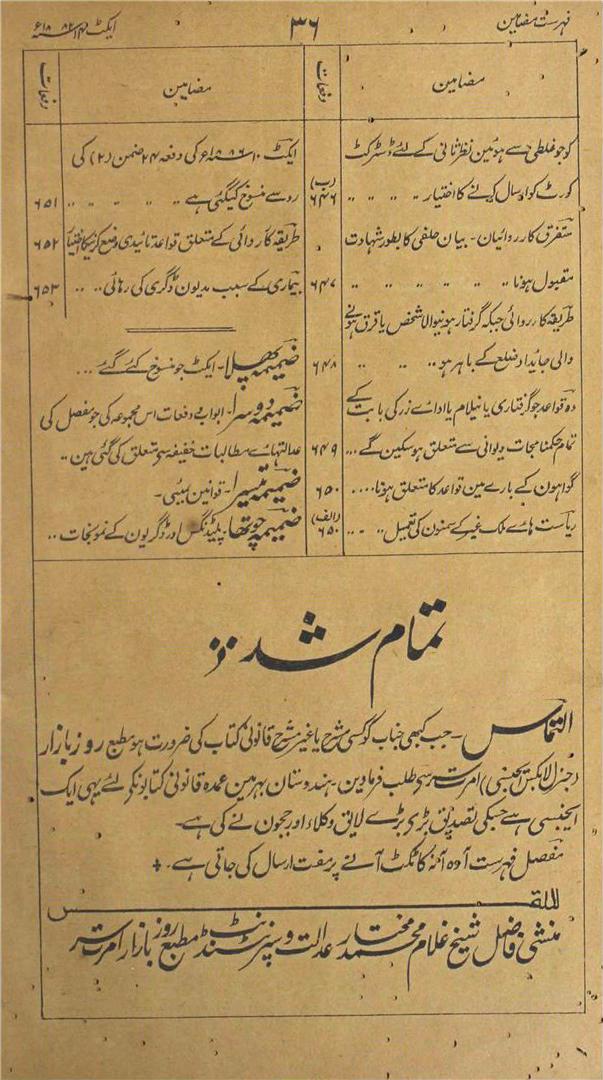 فہرست مضامین
۳۶
ایکٹ ۱۴ ۱۸۸۲ء
مضامین
دفعات
کو جو غلطی سے ہوئیں نظرثانی کے لئے ڈسٹرکٹ
کورٹ کو ارسال کرنے کا اختیار (ب) ۶۴۶
متفرق کارروائیان - بیان حلفی کا بطور شہادت
مقبول ہونا ۶۴۷
طریقہ کارروائی جبکہ گرفتار ہونیوالا شخص یا قرق ہونے
والی جایداد ضلع کے باہر ہو ۶۴۸
وہ قواعد جو گرفتاری یا نیلام یا اداے زر کی بابت کے
تمام حکمنامجات دیوانی سے متعلق ہو سکین گے ... ۶۴۹
گواہون کے بارے مین قواعد کا متعلق ہونا .... ۶۵۰
ریاست ہاے ملک غیر کے سمنون کی تعمیل (الف) ۶۵۰
مضامین
دفعات
ایکٹ ۱۰ ۱۸۸۶ء کی دفعہ ۲۴ ضمن (۲) کی
رو سے منسوخ کیگئی ہے ۶۵۱
طریقہ کارروائی کے متعلق قواعد تائیدی وضع کرنیکا اختیار ۶۵۲
بیماری کے سبب مدیون ڈگری کی رہائی .. .. ۶۵۳
ضمیمہ پہلا - ایکٹ جو منسوخ کئے گئے ...
ضمیمہ دوسرا - ابواب و دفعات اس مجموعہ کی جو مفصل کی
عدالتہاے مطالبات خفیفہ سے متعلق کی گئی ہین ..
ضمیمہ تیسرا - قوانین بمبئی -
ضمیمہ چوتھا - پلیڈنگس اور ڈگریون کے نمونجات ..
تمام شد
التماس - جب کبھی جناب کو کسی مشرح یا غیر مشرح قانونی کتاب کی ضرورت ہو مطبع روز بازار
(جنرل لا بکس ایجنسی) امرت سر سے طلب فرماوین - ہندوستان بھر مین عمدہ قانونی کتابونکے لئے یہی ایک
ایجنسی ہے جسکی تصدیق بڑی بڑے لایق وکلاء اور ججون نے کی ہے -
مفصل فہرست آدہ آنہ کا ٹکٹ آنے پر مفت ارسال کی جاتی ہے +
منشی فاضل شیخ غلام محمد مختار عدالت و سپرنٹنڈنٹ مطبع روز بازار امرت سر